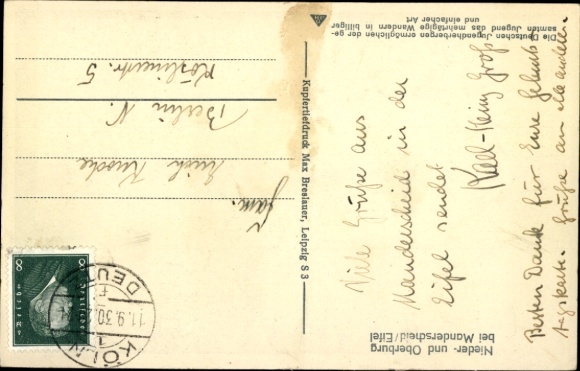 Nieder- und Oberburg
bei Manderscheid/Eifel
Die Deutschen Jugendherbergen ermöglichen der ge-
samten Jugend das mehrtägige Wandern in billiger
und einfacher Art
Kupfertiefdruck Max Breslauer, Leipzig S 3
Viele Grüße aus
Manderscheid in der
Eifel sendet
Karl-Heinz Groß
Besten Dank für Eure Geburts
tagskarte. Grüße an alle anderen.
Fam.
Erich
Berlin N.
Kösliner str. 5
KÖLN
DEUTZ
11.9.30.
1
8
8
Deutsches
Reich